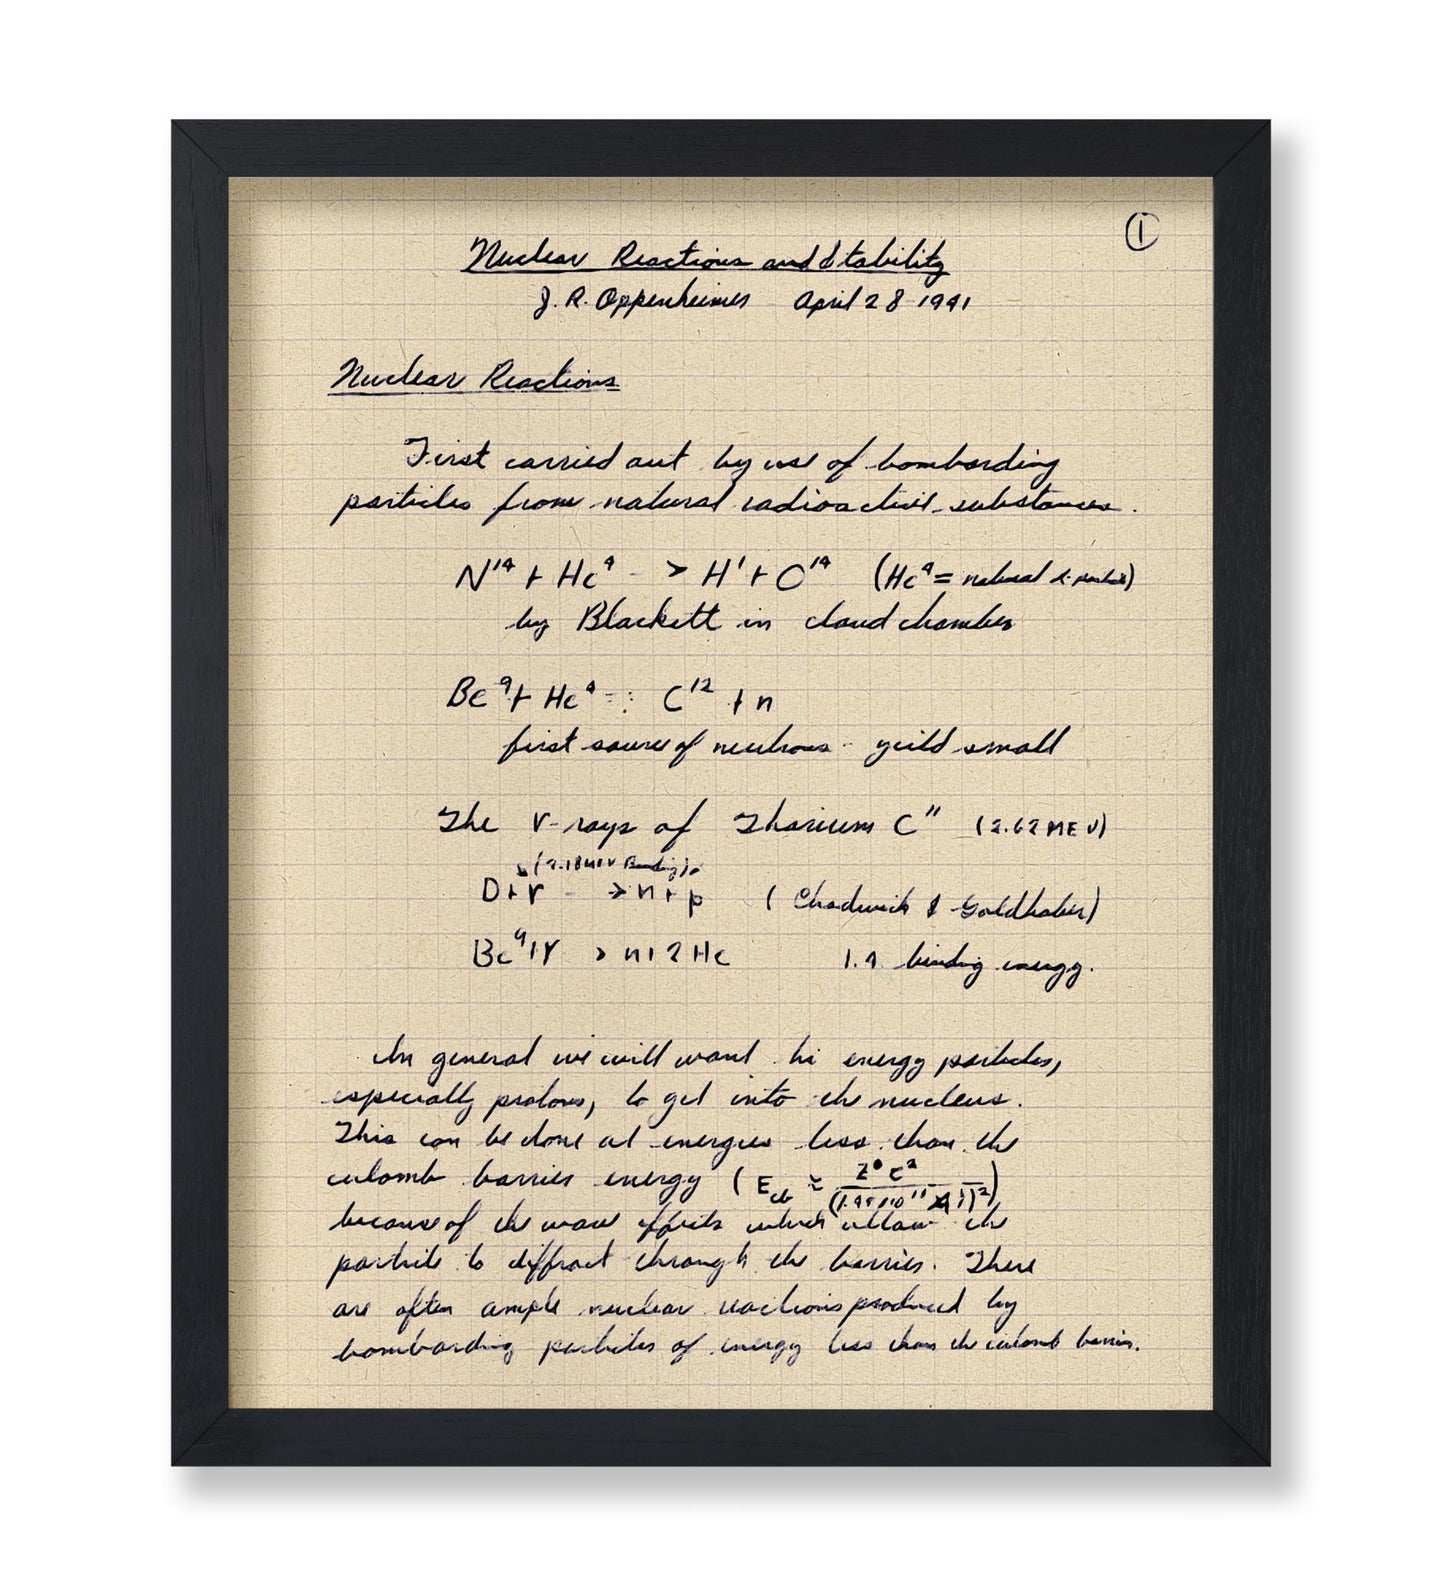 ①
Nuclear Reactions and Stability
J. R. Oppenheimer April 28 1941
Nuclear Reactions
First carried out by use of bombarding
particles from natural radioactive substances.
N¹⁴ + He⁴ -> H¹ + O¹⁴ (He⁴ = natural α-particle)
by Blackett in cloud chamber
Be⁹ + He⁴ C¹² + n
first source of neutrons - yeild small
The γ-rays of Thorium C" (2.62 MEV)
(2.18 MEV Binding)
D + γ -> n + p (Chadwick & Goldhaber)
Be⁹ + γ > n + 2He 1.4 binding energy.
In general we will want hi energy particles,
especially protons, to get into the nucleus.
This can be done at energies less than the
culomb barrier energy (E
because of the wave effects which allow the
particle to diffract through the barrier. There
are often ample nuclear reactions produced by
bombarding particles of energy less than the culomb barrier.